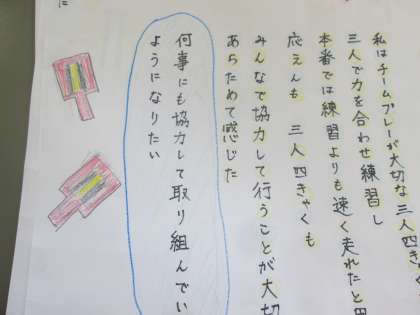 私はチームプレーが大切な三人四きゃ
三人で力を合わせ練習し
本番では練習よりも速く走れたと
応えんも 三人四きゃくも
みんなで協力して行うことが大切
あらためて感じた
何事にも協力して取り組んでい
ようになりたい